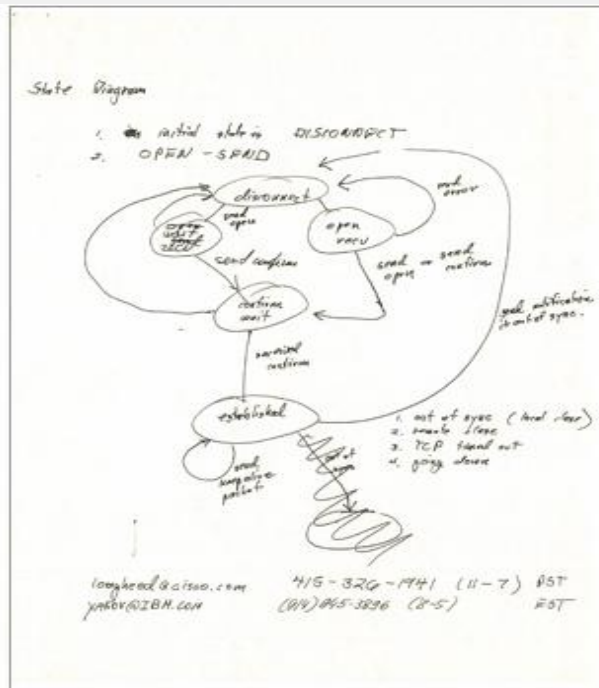 State Diagram
1. initial state is DISCONNECT
2. OPEN - SEND
disconnect
send
open
send
error
open
wait
open
recv
send confirm
send
open or send
confirm
confirm
wait
send notification
out of sync.
received
confirm
established
1. out of sync (local close)
2. remote close
3. TCP timed out
4. going down
send
keepalive
packet
out of
sync
lougheed@cisco.com 415-326-1941 (11-7) PST
yakov@IBM.COM (914) 945-3896 (8-5) EST